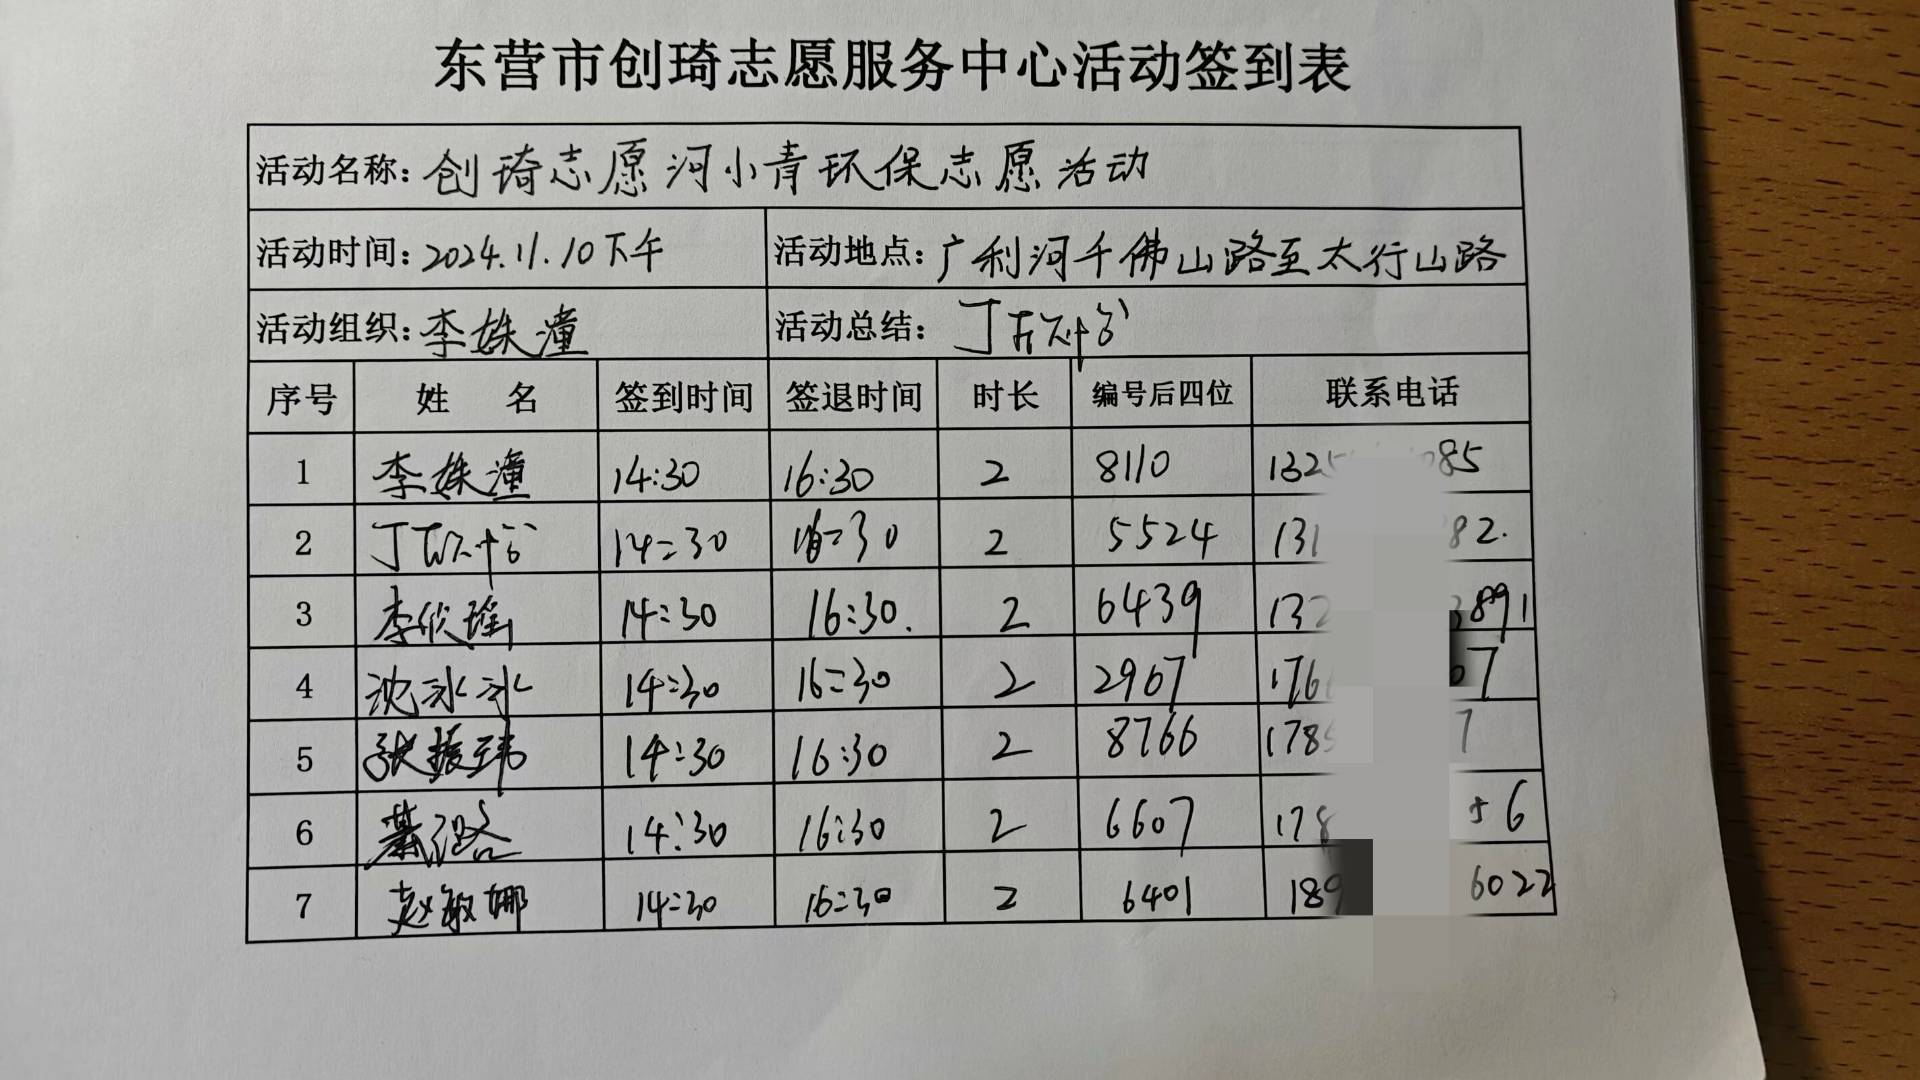 东营市创琦志愿服务中心活动签到表
活动名称: 创琦志愿河小青环保志愿活动
活动时间: 2024.11.10下午 活动地点: 广利河千佛山路至太行山路
活动组织: 李姝潼 活动总结: 丁
序号 姓 名 签到时间 签退时间 时长 编号后四位 联系电话
1 李姝潼 14:30 16:30 2 8110 132 085
2 丁 14:30 16:30 2 5524 131 82.
3 李欣瑶 14:30 16:30. 2 6439 132 3891
4 沈冰冰 14:30 16:30 2 2967 176 07
5 张振玮 14:30 16:30 2 8766 178 7
6 14:30 16:30 2 6607 178 6
7 赵敏娜 14:30 16:30 2 6401 189 6022